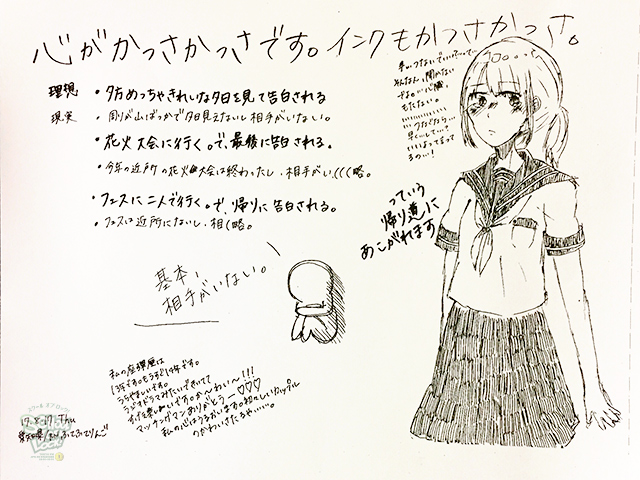 心がかっさかっさです。インクもかっさかっさ。
理想 ・夕方めっちゃきれいな夕日を見て告白される
現実 ・周りが山ばっかで夕日見えないし相手がいない。
・花火大会に行く。で、最後に告白される。
・今年の近所の花火大会は終わったし、相手がい(((略。
・フェスに二人で行く。で、帰りに告白される。
・フェスは近所にないし、相(略。
基本、
相手がいない。
手、つないでいい…って…
もたない。
早く…して…
っていう
帰り道に
あこがれます
私の
13年です。もうすぐ14年です。
うらやましいです。
マッチングマンありがとうー♡♡♡
私の心はうるおいます。初々しいカップル
のかわいさたるや……。
17.8.17.Thu